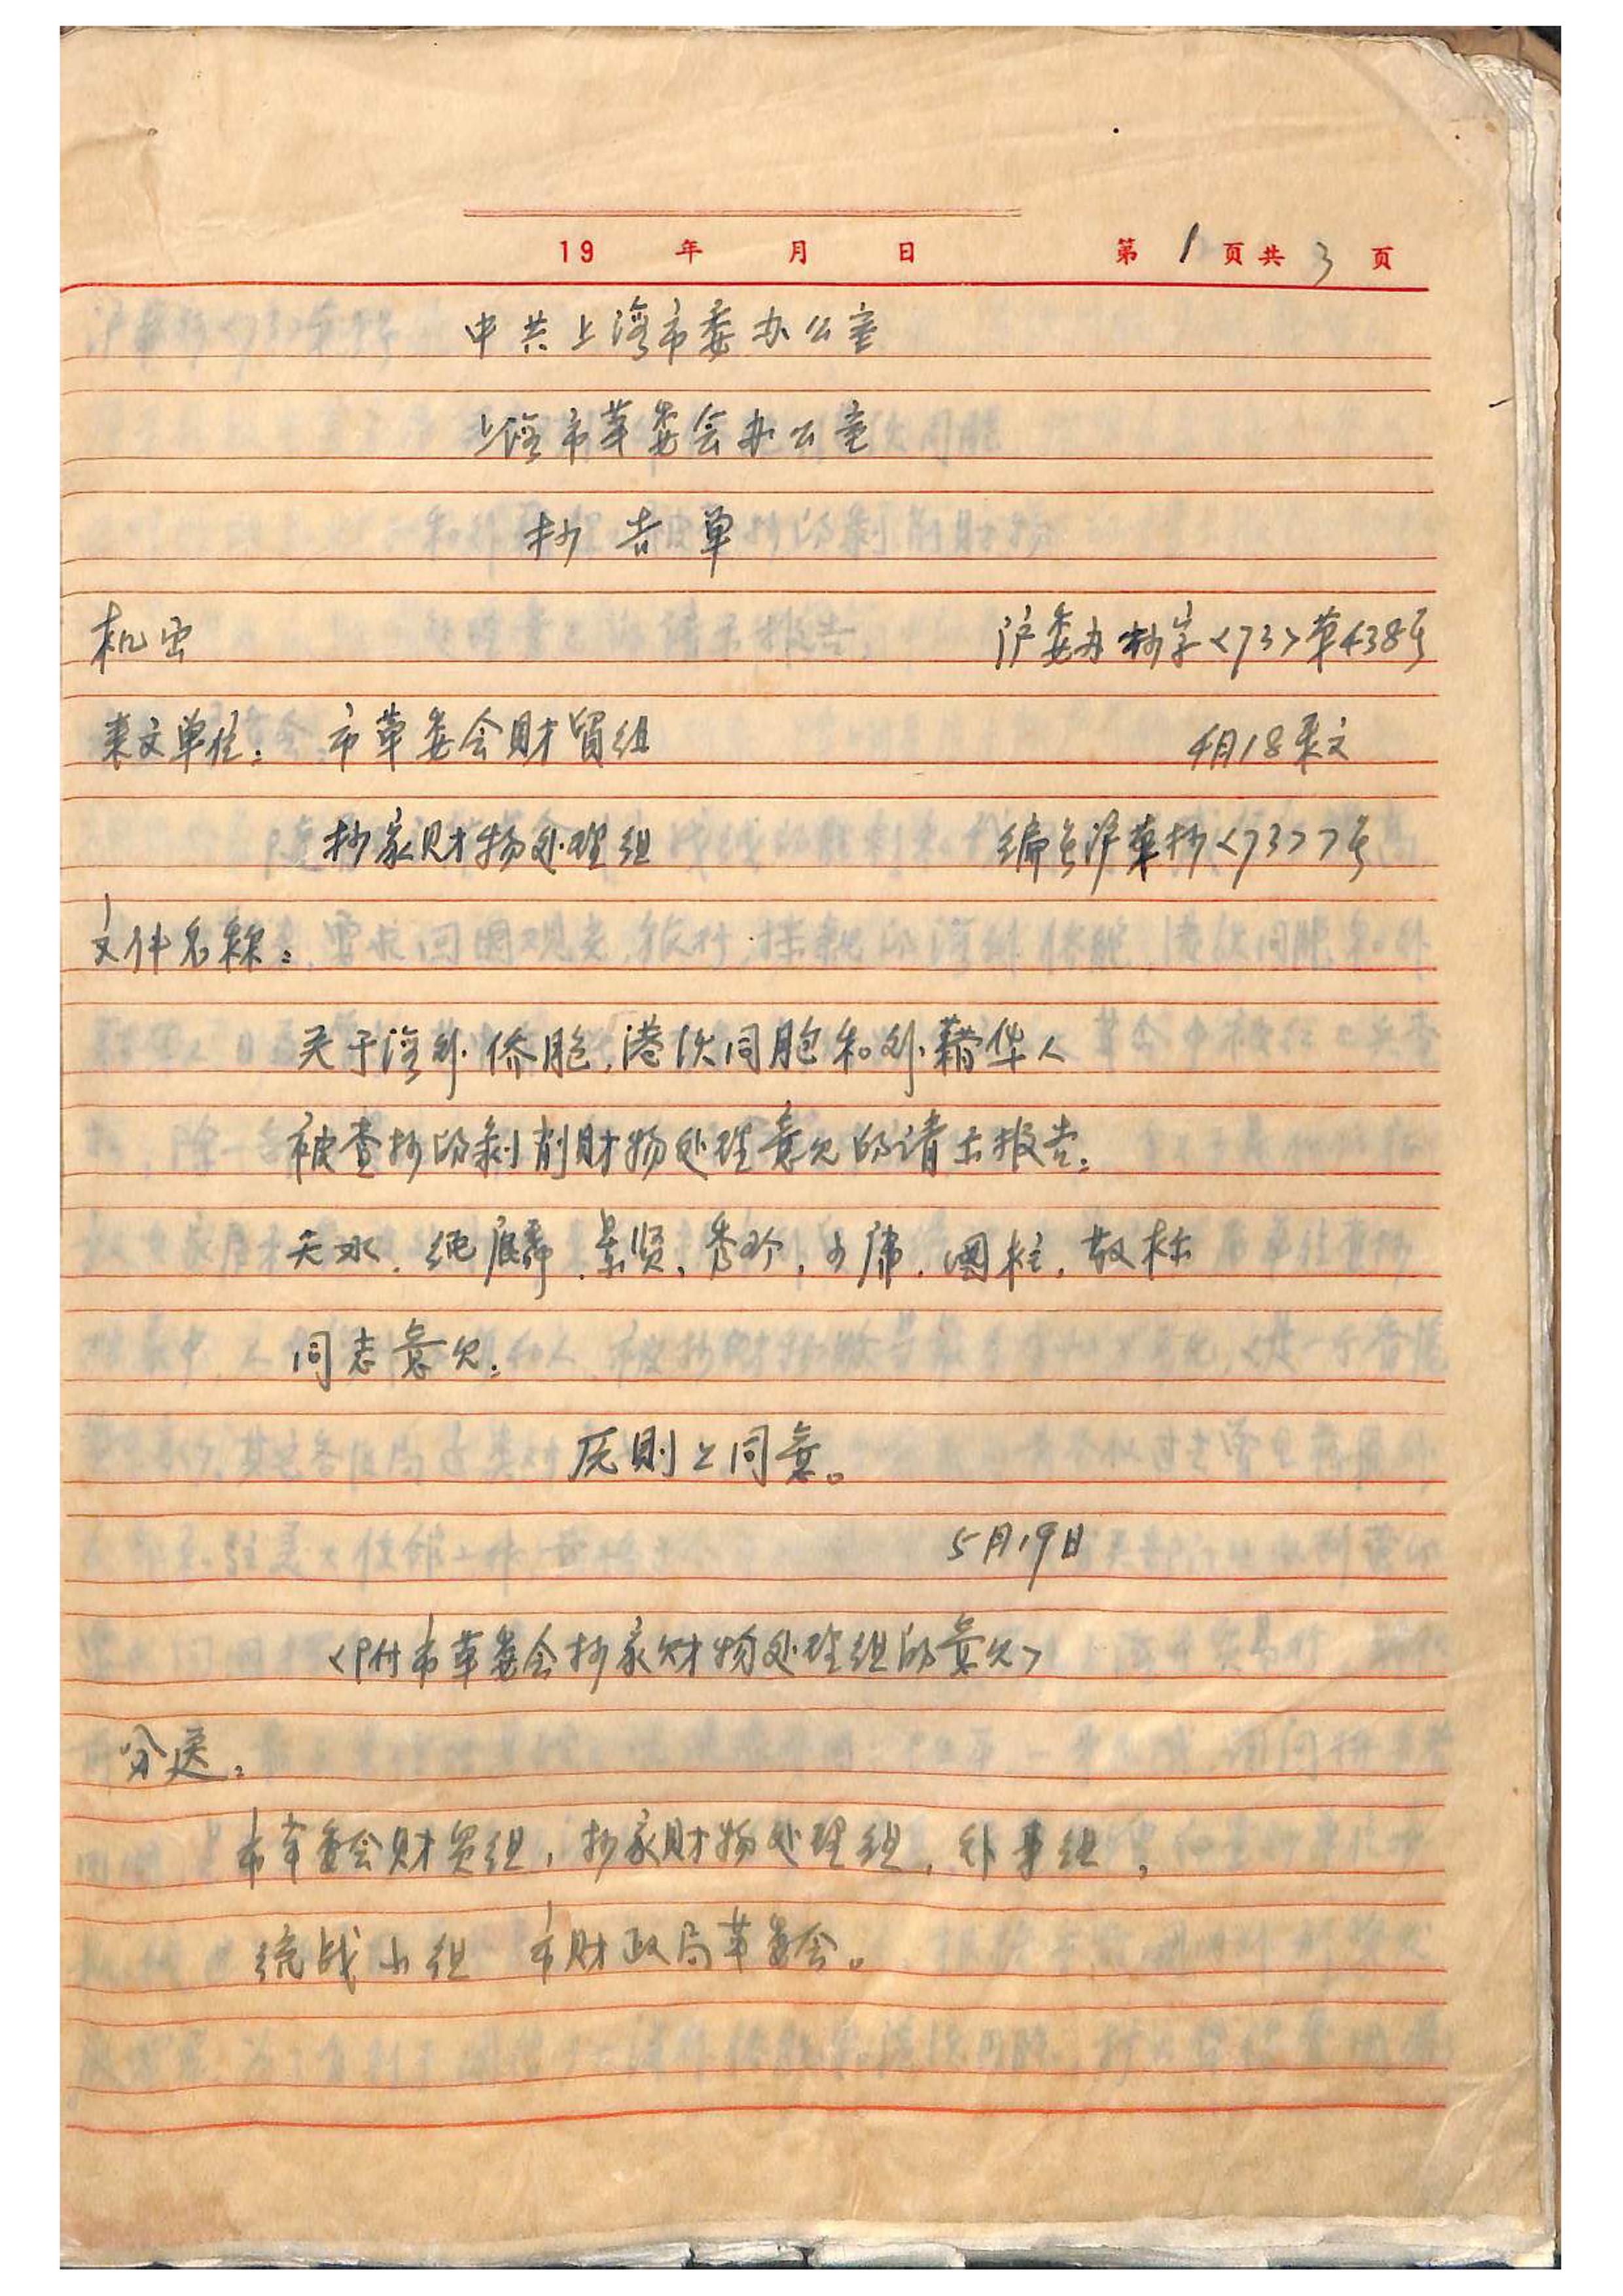 19 年 月 日 第1页共3页
中共上海市委办公室
上海市革委会办公室
抄告单
机密 沪委办抄字<73>第438号
来文单位: 市革委会财贸组 4月18来文
抄家财物处理组 编号沪革抄<73>7号
文件名称:
关于海外侨胞,港澳同胞和外籍华人
被查抄的剥削财物处理意见的请示报告:
天水.绳麟.景贤、秀珍,少庸.国柱,敬标
同志意见:
原则上同意。
5月19日
<附市革委会抄家财物处理组的意见>
分送:
市革委会财贸组,抄家财物处理组,外事组,
统战小组 市财政局革委会。